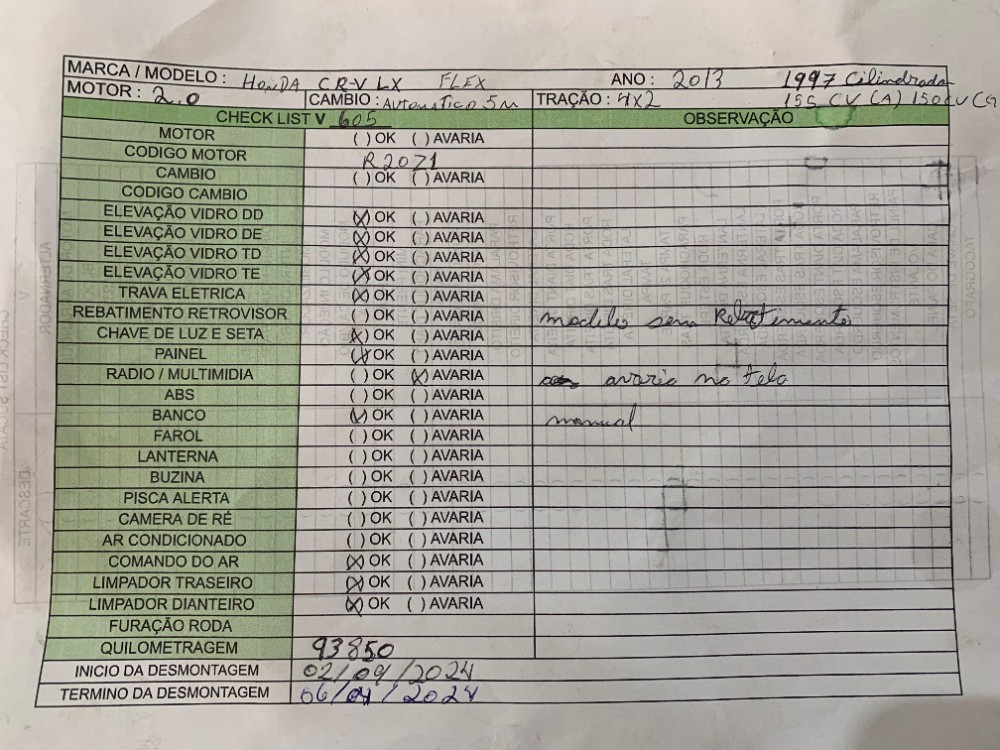 MARCA / MODELO : HONDA CR-V LX FLEX ANO : 2013 1997 Cilindrada
MOTOR : 2.0 CAMBIO : AUTOMATICO 5M TRAÇÃO : 4X2 155 CV (A) 150 CV (G
CHECK LIST V 605 OBSERVAÇÃO
MOTOR ( ) OK ( ) AVARIA
CODIGO MOTOR R20Z1
CAMBIO ( ) OK ( ) AVARIA
CODIGO CAMBIO
ELEVAÇÃO VIDRO DD (X) OK ( ) AVARIA
ELEVAÇÃO VIDRO DE (X) OK ( ) AVARIA
ELEVAÇÃO VIDRO TD (X) OK ( ) AVARIA
ELEVAÇÃO VIDRO TE (X) OK ( ) AVARIA
TRAVA ELETRICA (X) OK ( ) AVARIA
REBATIMENTO RETROVISOR ( ) OK ( ) AVARIA modelo sem Rebatimento
CHAVE DE LUZ E SETA (X) OK ( ) AVARIA
PAINEL (X) OK ( ) AVARIA
RADIO / MULTIMIDIA ( ) OK (X) AVARIA avaria na tela
ABS ( ) OK ( ) AVARIA
BANCO (X) OK ( ) AVARIA manual
FAROL ( ) OK ( ) AVARIA
LANTERNA ( ) OK ( ) AVARIA
BUZINA ( ) OK ( ) AVARIA
PISCA ALERTA ( ) OK ( ) AVARIA
CAMERA DE RÉ ( ) OK ( ) AVARIA
AR CONDICIONADO ( ) OK ( ) AVARIA
COMANDO DO AR (X) OK ( ) AVARIA
LIMPADOR TRASEIRO (X) OK ( ) AVARIA
LIMPADOR DIANTEIRO (X) OK ( ) AVARIA
FURAÇÃO RODA
QUILOMETRAGEM 93850
INICIO DA DESMONTAGEM 02/09/2024
TERMINO DA DESMONTAGEM 06/ /2024